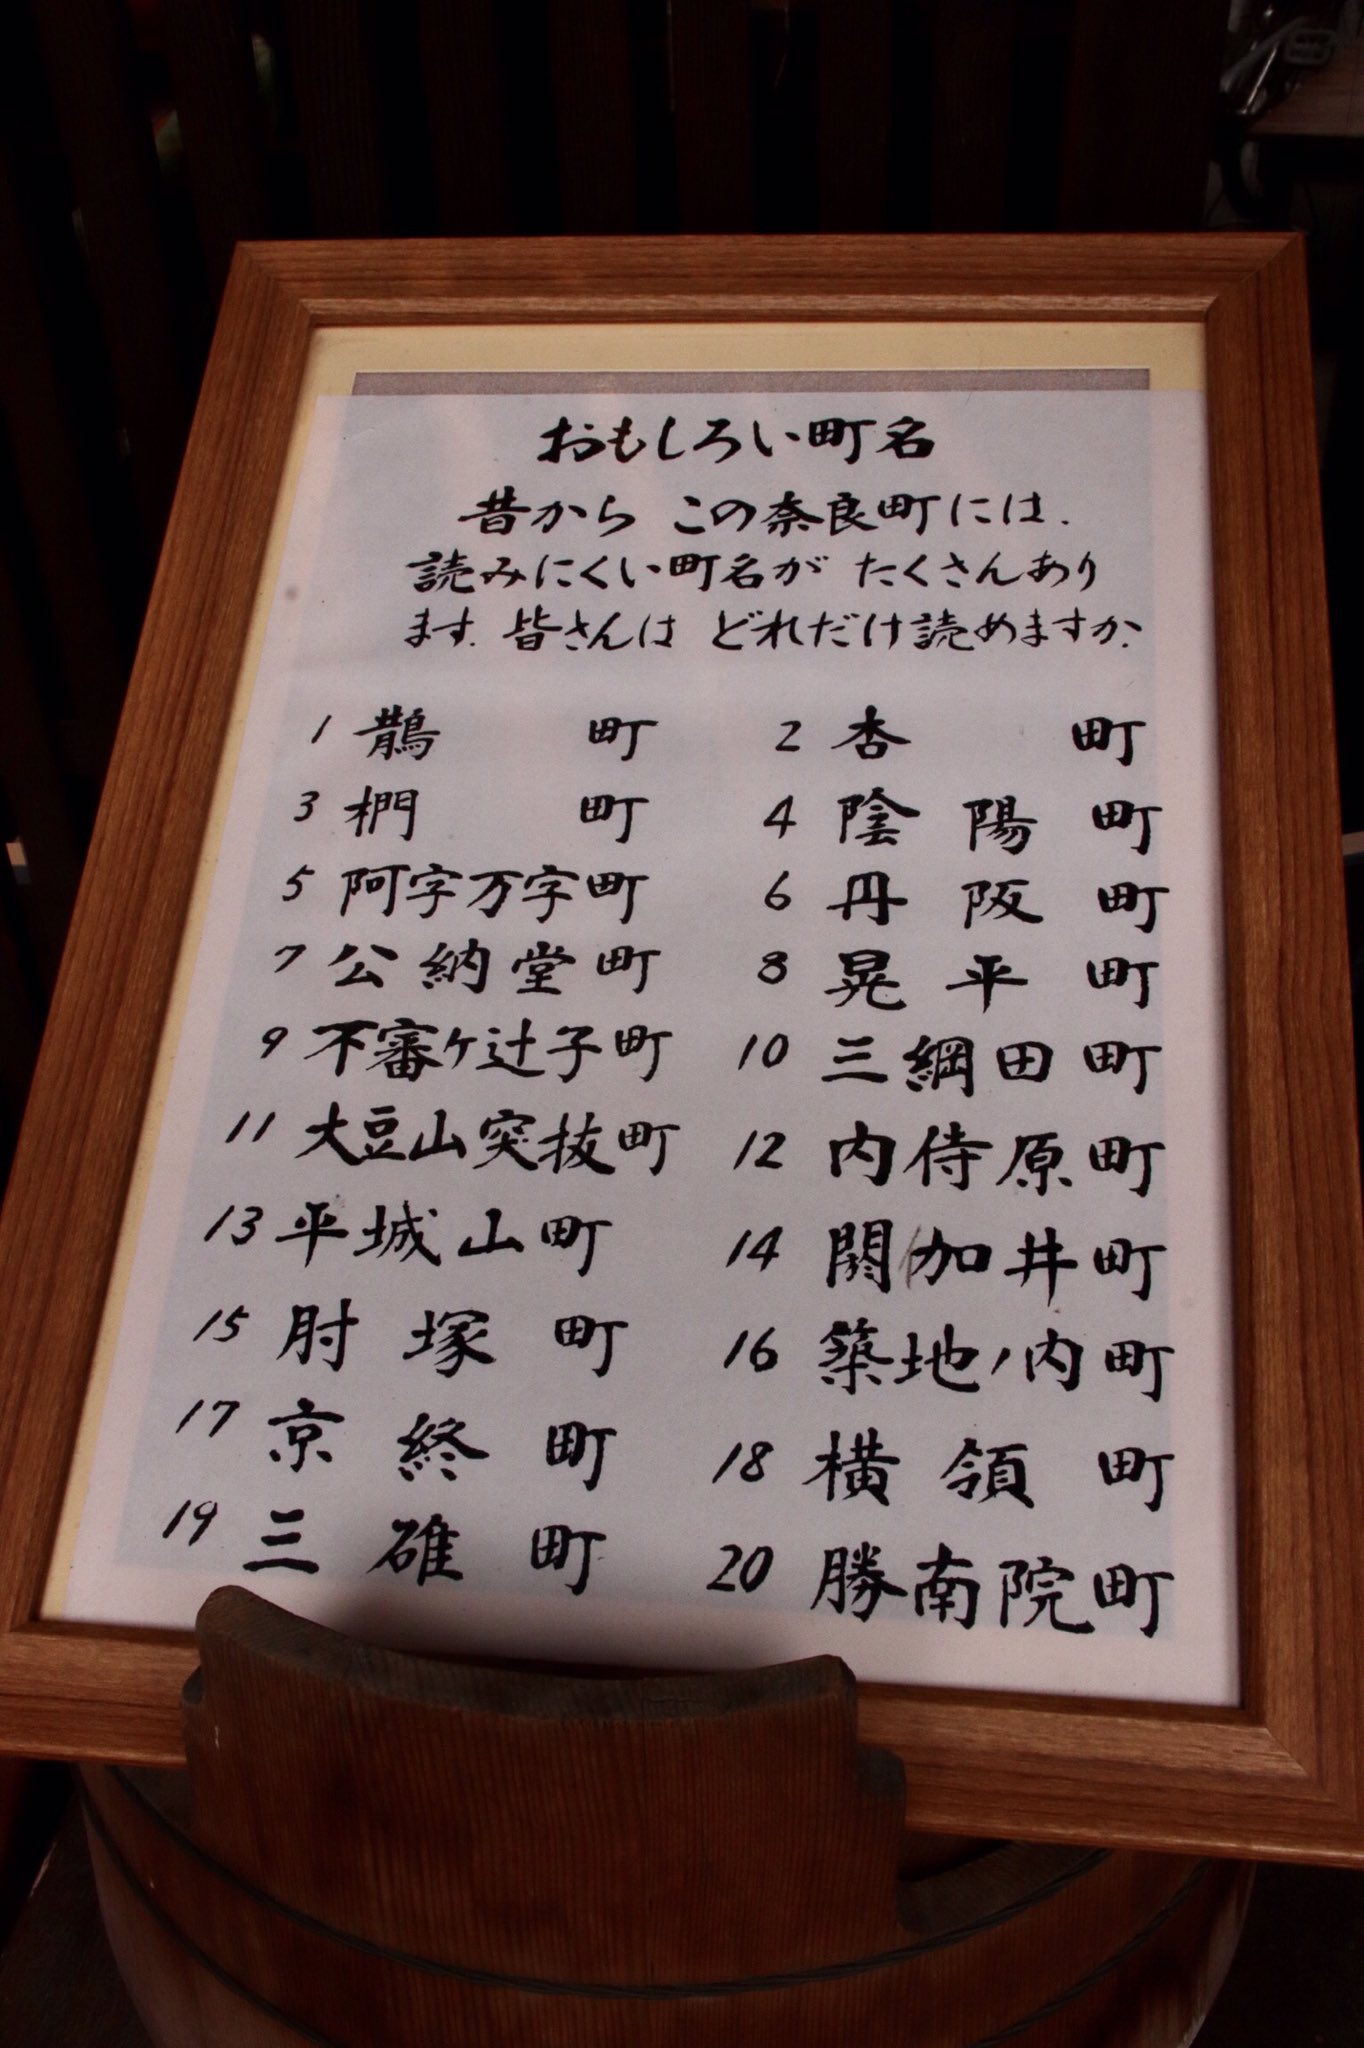 おもしろい町名
昔から この奈良町には、
読みにくい町名が たくさんあり
ます。皆さんは どれだけ読めますか。
1 鵲 町
2 杏 町
3 椚 町
4 陰陽町
5 阿字万字町
6 丹阪町
7 公納堂町
8 晃平町
9 不審ケ辻子町
10 三綱田町
11 大豆山突抜町
12 内侍原町
13 平城山町
14 閼加井町
15 肘塚町
16 築地ノ内町
17 京終町
18 横領町
19 三碓町
20 勝南院町